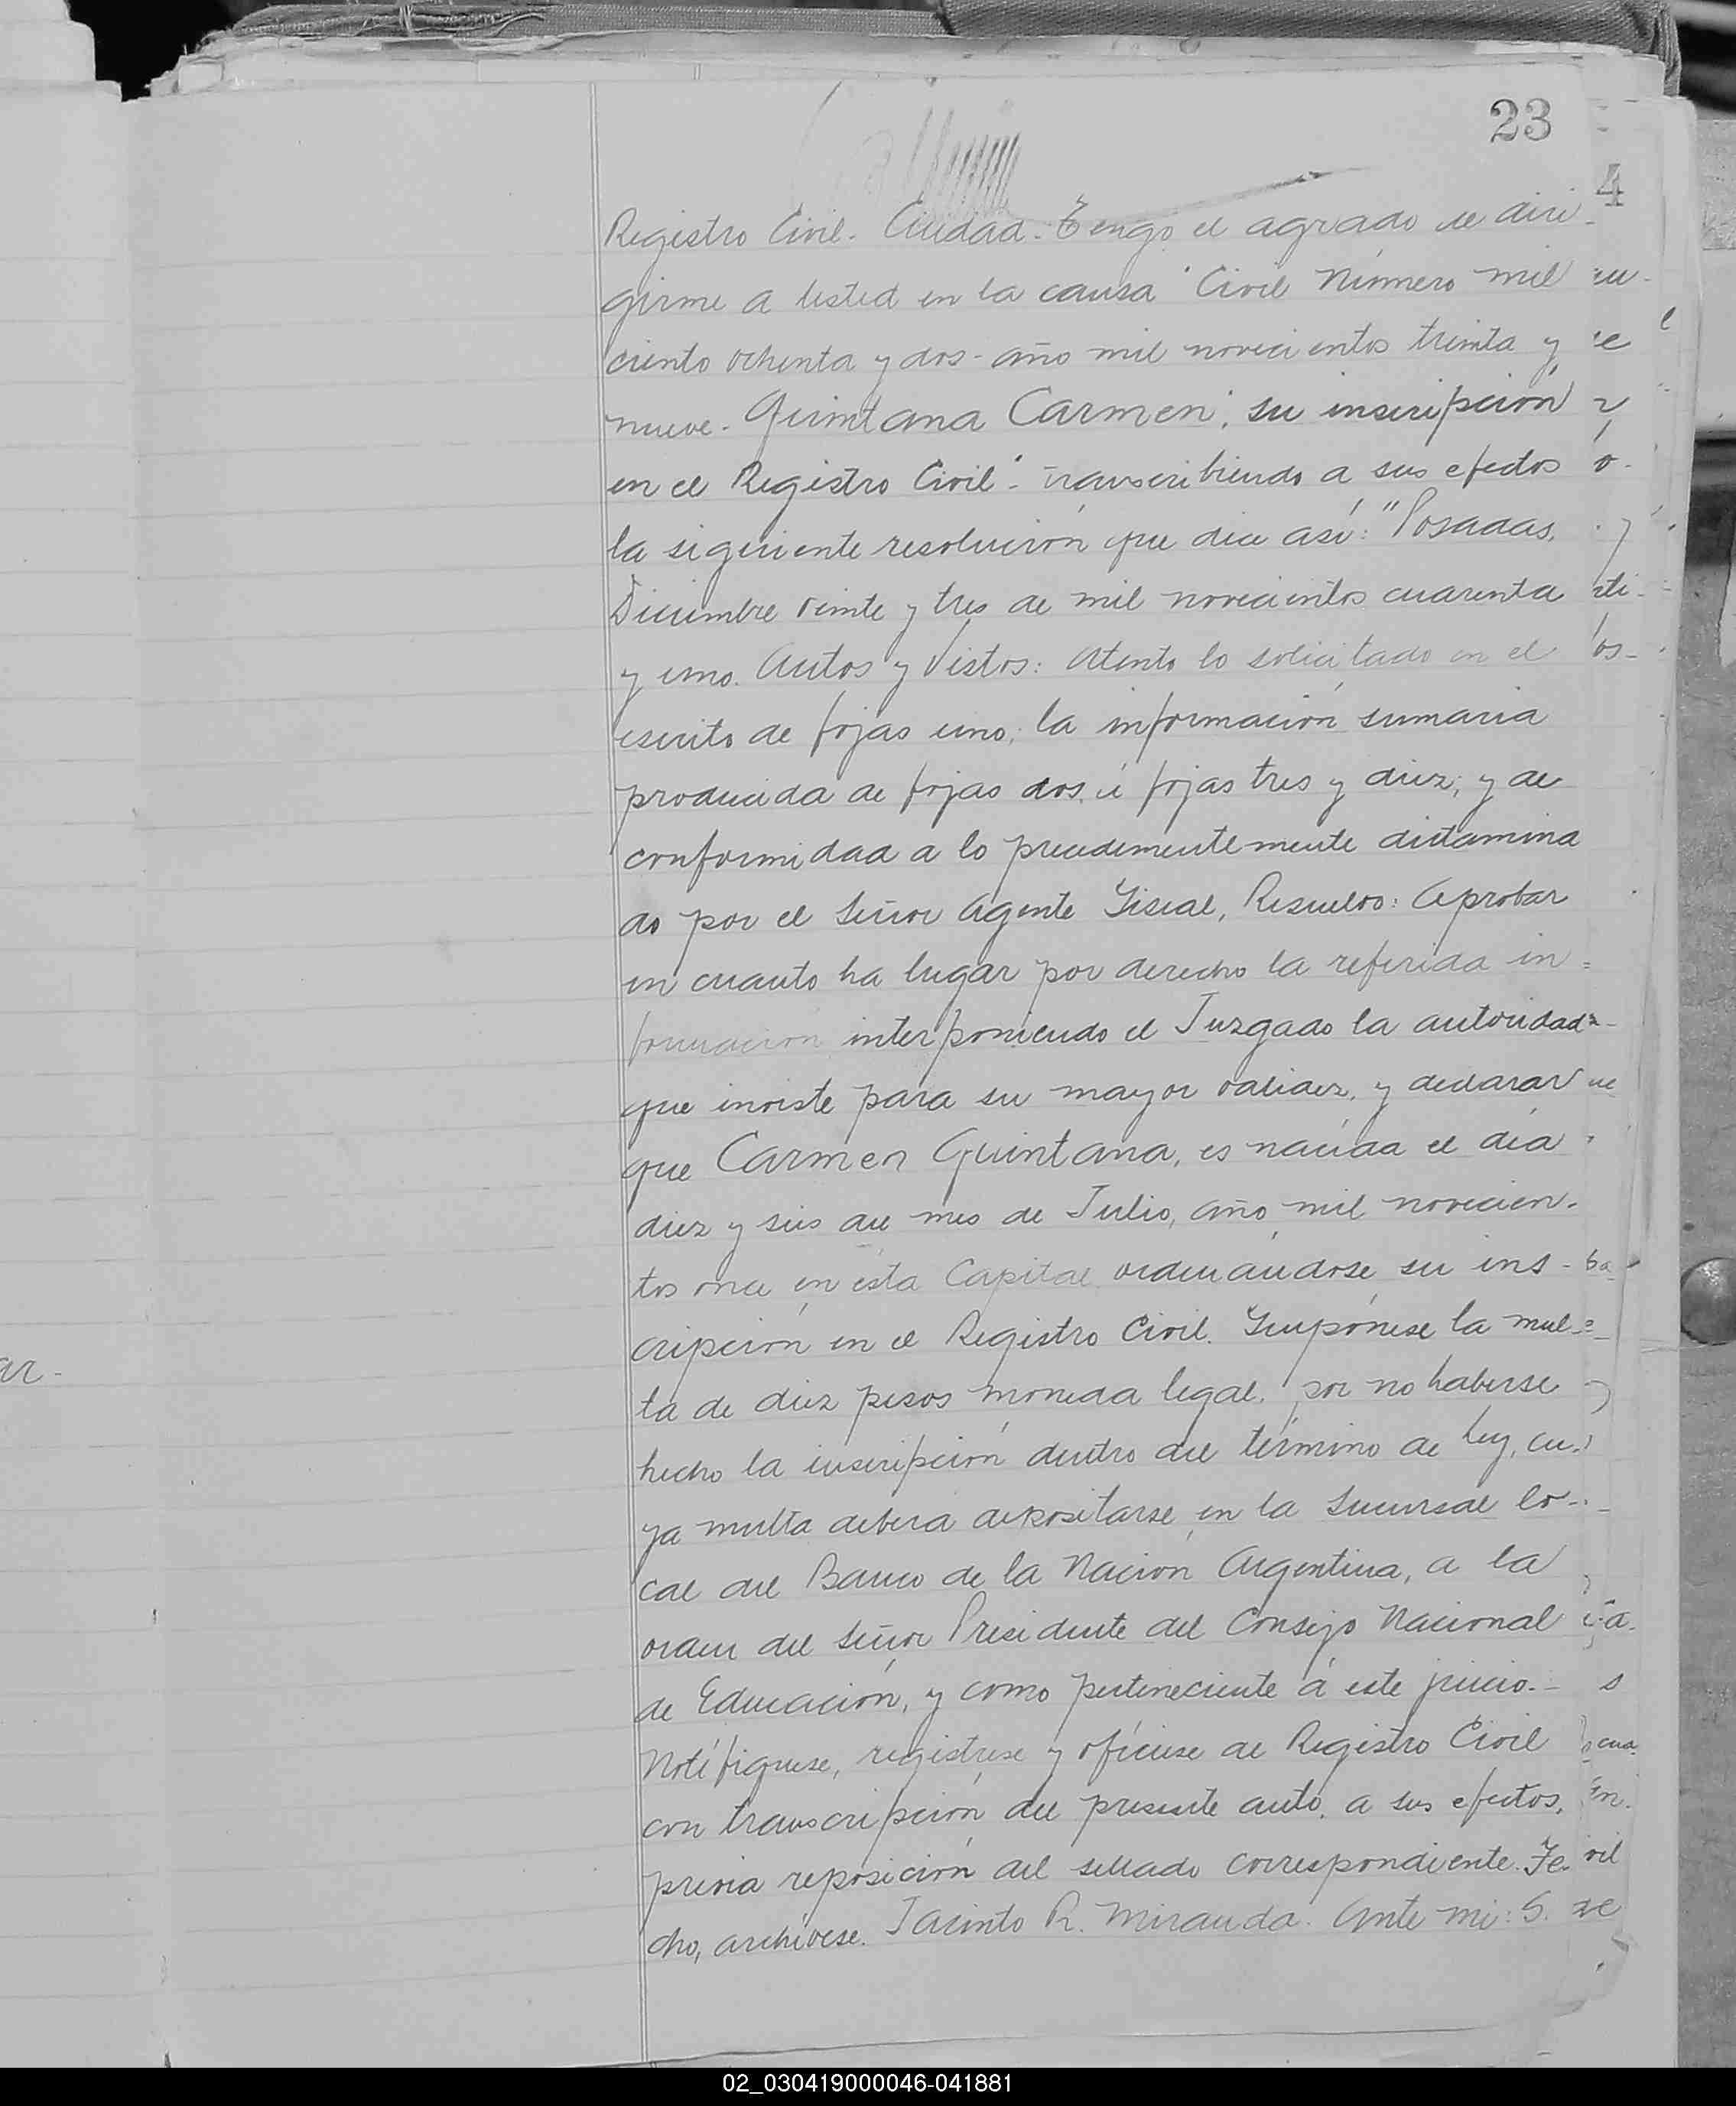 23
4
Registro Civil. Ciudad. Tengo el agrado de diri-
girme a Usted en la causa "Civil Número mil
ciento ochenta y dos - año mil novecientos treinta y
nueve. Quintana Carmen; su inscripción
en el Registro Civil". transcribiendo a sus efectos
la siguiente resolución que dice así: "Posadas,
Diciembre veinte y tres de mil novecientos cuarenta
y uno. Autos y Vistos: Atento lo solicitado en el
escrito de fojas uno; la información sumaria
producida de fojas dos, a fojas tres y diez; y de
conformidad a lo precedentemente dictamina
do por el Señor Agente Fiscal, Resuelvo: Aprobar
en cuanto ha lugar por derecho la referida in=
formación interponiendo el Juzgado la autoridad
que inviste para su mayor validez, y declarar
que Carmen Quintana, es nacida el día
diez y seis del mes de Julio, año mil novecien-
tos once en esta Capital ordenándose su ins-
cripción en el Registro Civil. Impónese la mul-
ta de diez pesos moneda legal, por no haberse
hecho la inscripción dentro del término de ley, cu-
ya multa deberá depositarse en la Sucursal lo-
cal del Banco de la Nación Argentina, a la
orden del Señor Presidente del Consejo Nacional
de Educación, y como perteneciente á este juicio.-
Notifíquese, regístrese y ofíciese al Registro Civil
con transcripción del presente auto, a sus efectos,
previa reposición del sellado correspondiente. Fe-
cho, archívese. Jacinto R. Miranda. Ante mi: S.
ar-
02_030419000046-041881